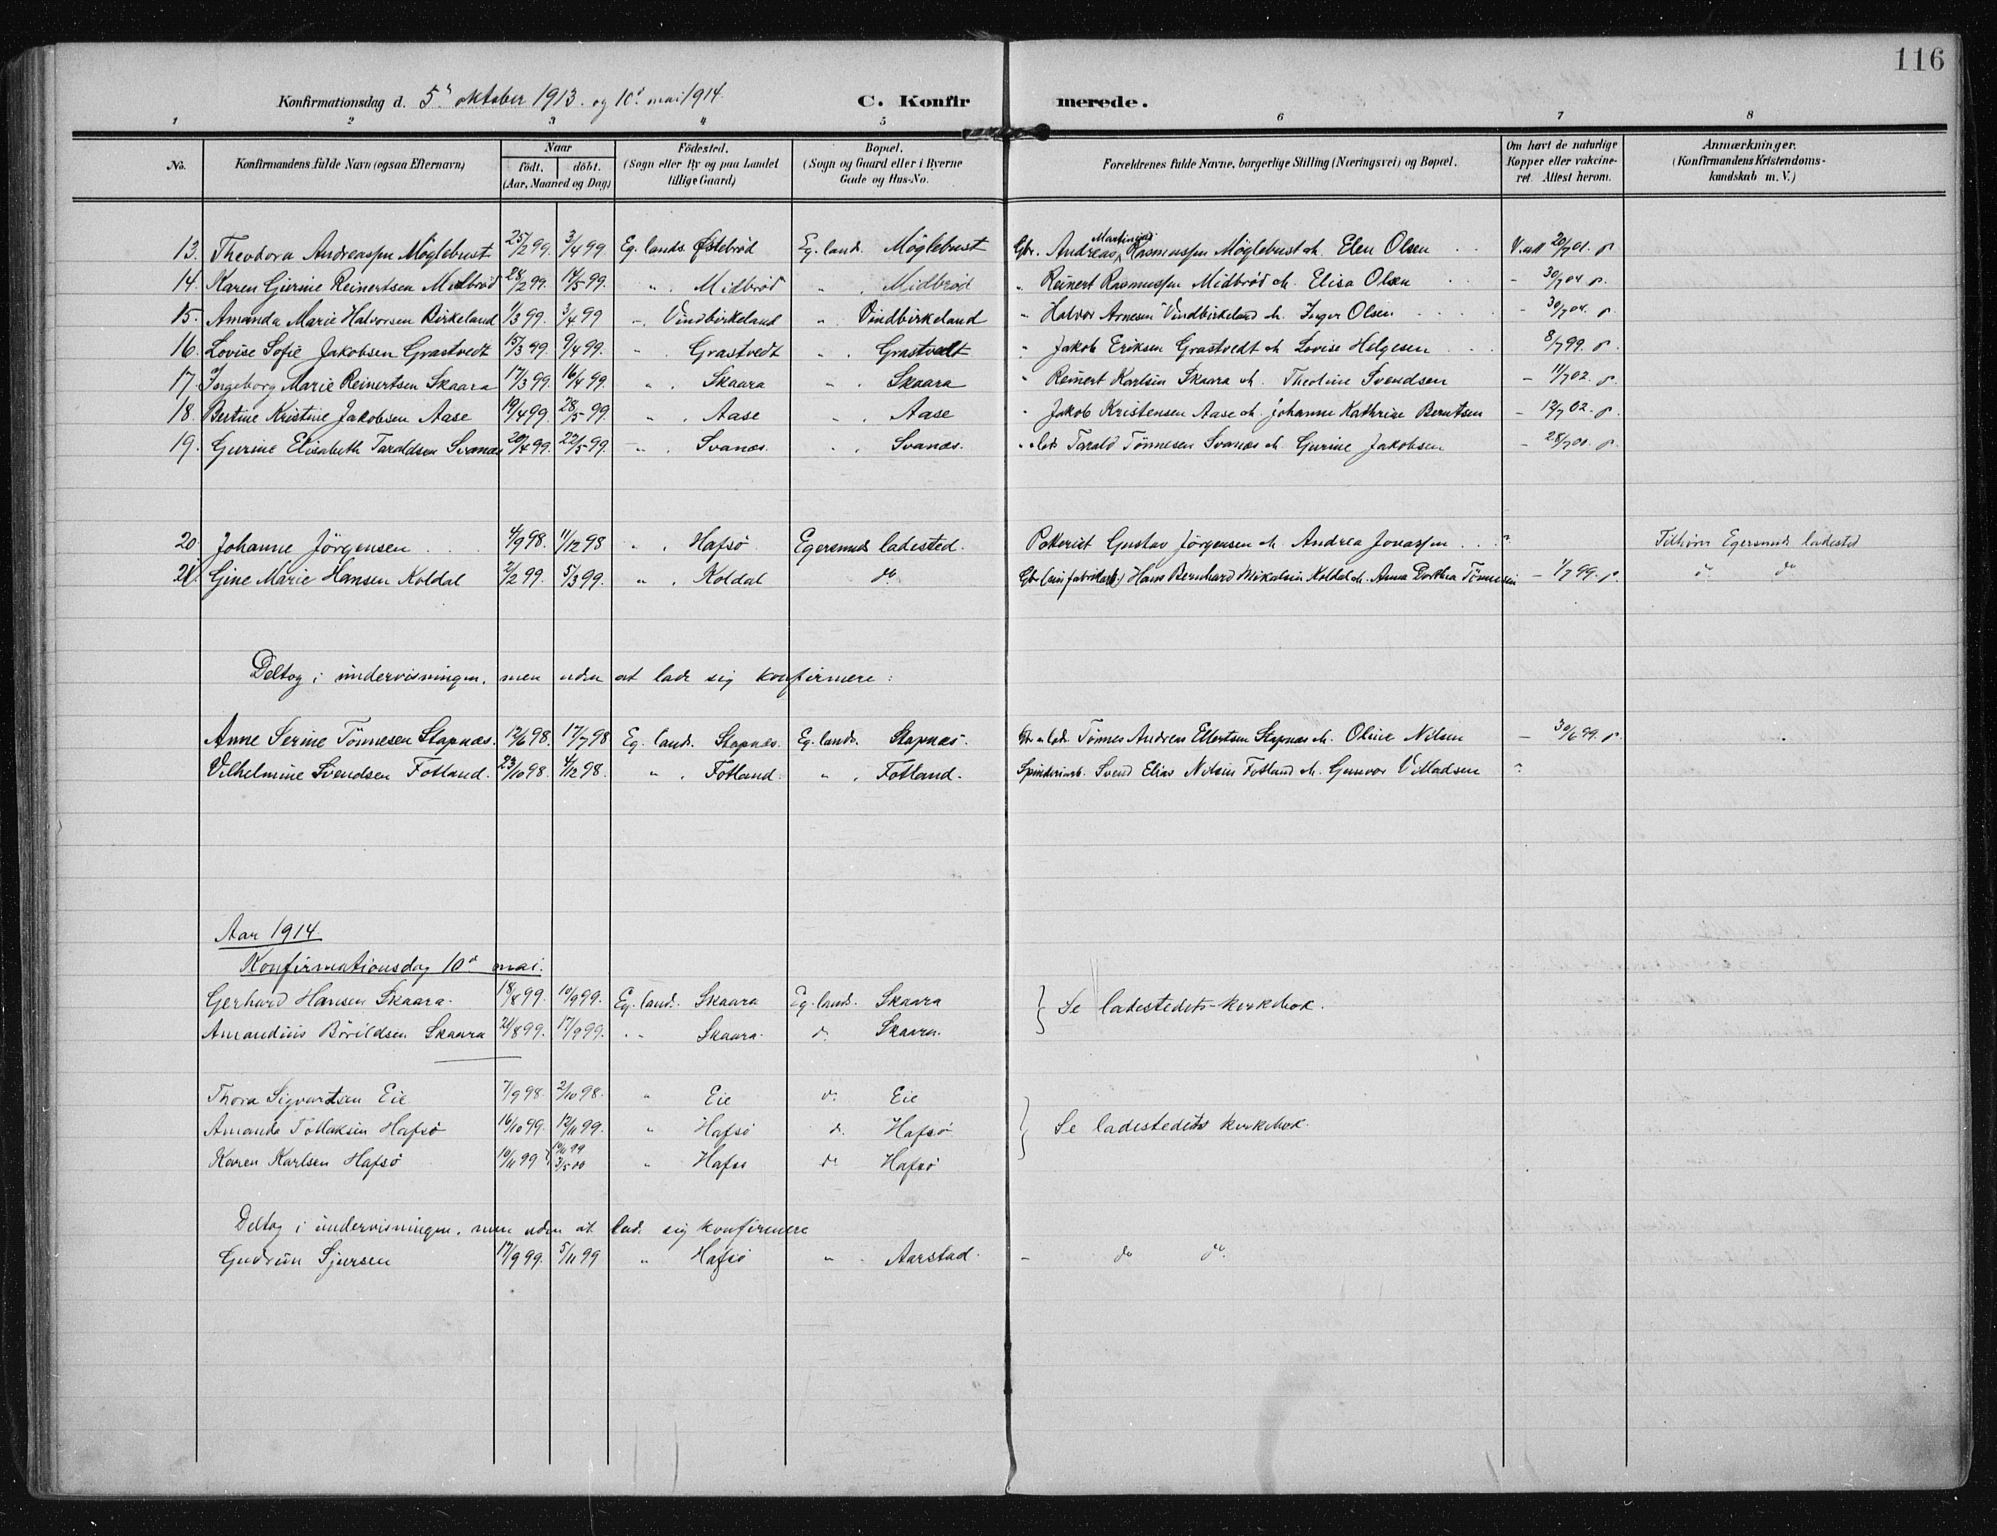 116
Konfirmationsdag d. 5te oktober 1913. og 10de mai 1914. C. Konfirmerede.
1 2 3 4 5 6 7 8
No. Konfirmandens fulde Navn (ogsaa Efternavn) Naar födt. döbt. (Aar, Maaned og Dag) Födested. (Sogn eller By og paa Landet tillige Gaard) Bopæl. (Sogn og Gaard eller i Byerne Gade og Hus-No. Forældrenes fulde Navne, borgerlige Stilling (Næringsvei) og Bopæl. Om havt de naturlige Kopper eller vakcineret. Attest herom. Anmærkninger. (Konfirmandens Kristendomskundskab m. V.)
13. Theodora Andreassen Möglebust 25/2 99. 3/4 99 Eg. lands. Østebrød Eg. lands. Möglebust Gbr. Andreas Martinius Rasmussen Möglebust & Elen Olsen V. att 20/7 01. p
14. Karen Gurine Reinertsen Midbrød 28/2 99. 14/5 99. " . Midbrød " . Midbrød " Reinert Rasmussen Midbrød & Elisa Olsen - 30/7 04 p.
15. Amanda Marie Halvorsen Birkeland 1/3 99. 3/4 99 - . Vindbirkeland " . Vindbirkeland " Halvor Arnesen Vindbirkeland & Inger Olsen - 30/7 04. p
16. Lovise Sofie Jakobsen Grastvedt 15/3 99. 9/4 99. " . Grastvedt " . Grastvedt " Jakob Eriksen Grastvedt & Lovise Helgesen 8/7 99. p
17. Ingeborg Marie Reinertsen Skaara 17/3 99. 16/4 99. " . Skaara " . Skaara " Reinert Karlsen Skaara & Theoline Svendsen - 11/7 02. p
18. Bertine Kristine Jakobsen Aase 19/4 99. 28/5 99. " . Aase " . Aase " Jakob Kristensen Aase & Johanne Kathrine Berntsen - 12/7 02. p
19. Gurine Elisabeth Taraldsen Svanæs 20/4 99. 22/5 99. - . Svanæs. " . Svanæs. Tarald Tønnesen Svanæs & Gurine Jakobsen - 28/7 00. p.
20. Johanne Jörgensen 4/9 98. 11/12 98 " . Hafsö Egersunds ladested. Gustav Jörgensen & Andrea Jonassen " Tilhører Egersunds ladested
21. Gine Marie Hansen Koldal 2/2 99. 5/3 99. " . Koldal do Hans Bernhard Mikalsen Koldal & Anna Dorthea Tönnesen - 1/7 99. p. do do
Deltog i undervisningen, men uden at lade sig konfirmere:
Anne Serine Tönnesen Stapnæs. 12/6 98. 17/7 98 Eg. lands. Stapnæs. Eg. lands. Stapnæs. Tönnes Andreas Ellertsen Stapnæs & Oline Nilsen - 30/6 99. p
Vilhelmine Svendsen Fotland. 23/10 98. 4/12 98. " . Fotland. " . Fotland. Spinderiarb. Svend Elias Nilsen Fotland & Gunvor V. Madsen "
Aar 1914.
Konfirmationsdag 10de mai.
Gerhard Hansen Skaara. 18/8 99. 10/9 99. Eg. lands. Skaara Eg. lands. Skaara } Se ladestedets kirkebok.
Amandius Börildsen Skaara 21/8 99. 17/9 99. " . Skaara. do Skaara.
Thora Sigvartsen Eie 7/9 98. 2/10 98. " Eie do. Eie
Amanda Tollaksen Hafsö 16/10 99. 12/11 99. " Hafsö do. Hafsö. } Se ladestedets kirkebok.
Karen Karlsen Hafsö 10/11 99 19/11 99 3/5 00 " Hafsö do Hafsö
Deltog i undervisningen, men uden at lade sig konfirmere
Gudrun Sjursen 17/9 99. 5/11 99 " Hafsö " . Aarstad. - do do.